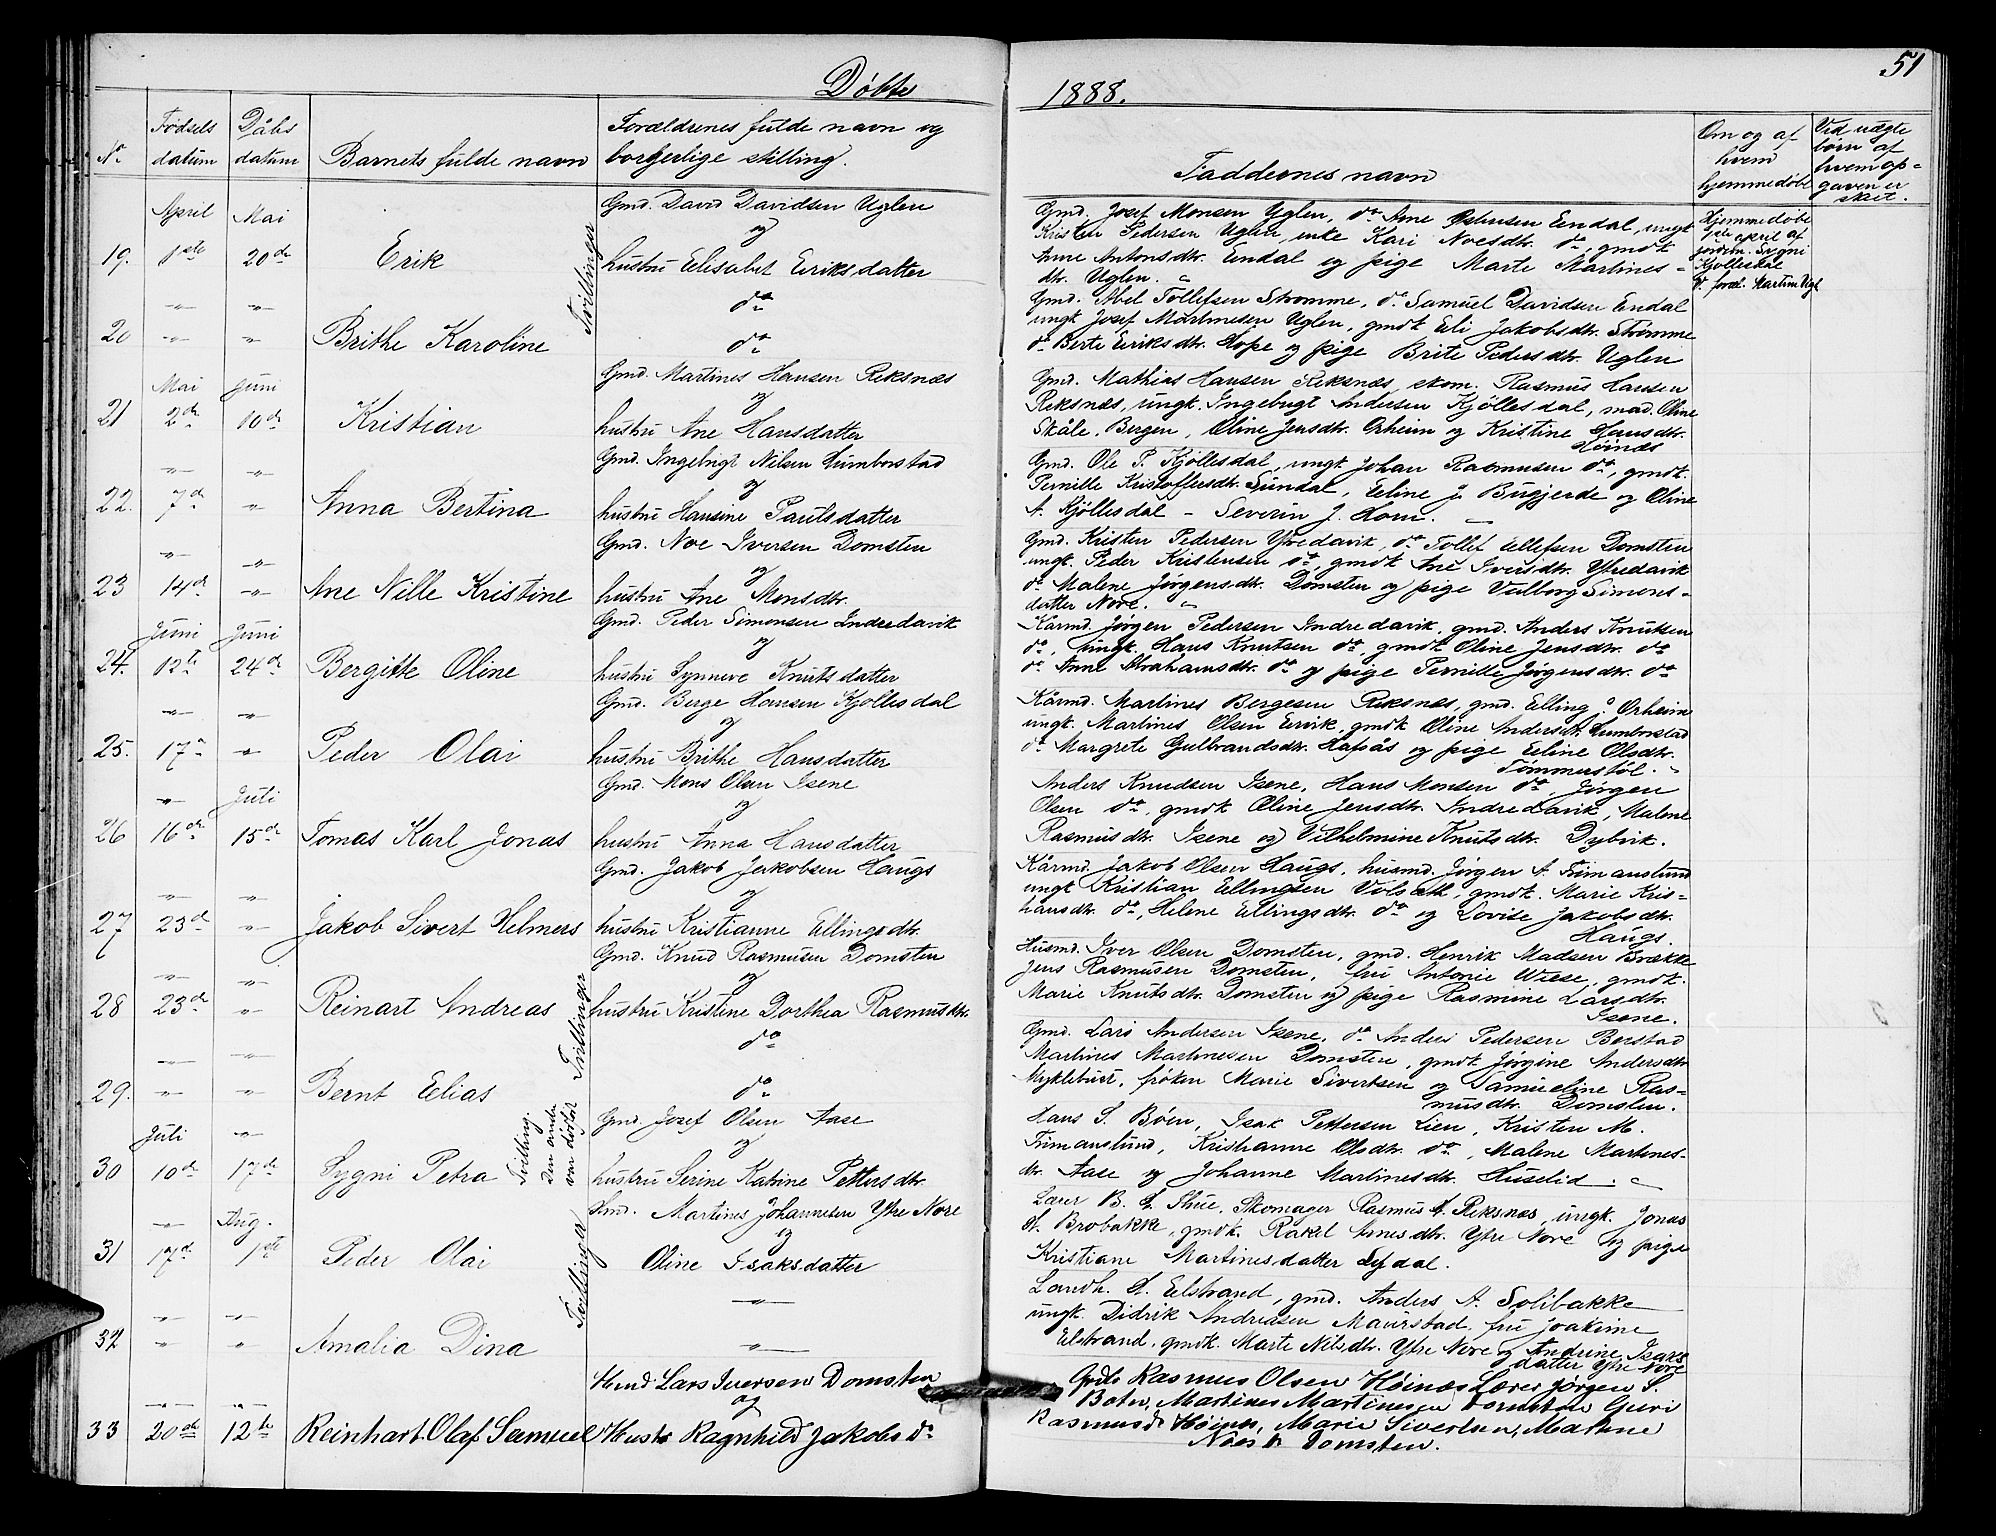 Døbte
1888.
51
No
Fødsels datum
Dåbs datum
Barnets fulde navn
Forældrenes fulde navn og borgerlige stilling.
Faddernes navn
Om og af hvem hjemmedøbt
Ved uægte børn af hvem opgaven er skeet.
April
Mai
19. 1ste 20de Erik
Tvillinger
Gmd. David Davidsen Uglen
og
hustru Elisabet Eriksdatter
Gmd. Josef Monsen Uglen, do Arne Endal, ungk
Kristen Pedersen Uglen, enke Kari Noesdtr. do, gmdk
Anne Antonsdtr. Endal og pige Marte Martines-
dtr. Uglen.
Hjemmedøbt
1ste april af
jordem. Sygni
Kjøllesdal
20 Brithe Karoline
do
do
Gmd. Abel Tollefsen Strømme, do Samuel Davidsen Endal
ungk Josef Martinesen Uglen, gmdk Eli Jakobsdtr. Strømme
do Berte Eriksdtr. Hope og pige Brite Pedersdtr. Uglen
Mai Juni
21 2de 10de Kristian
Gmd. Martines Hansen Reksnæs
og
hustru Ane Hansdatter
Gmd. Mathias Hansen Reksnæs, skom. Rasmus Hansen
Reksnæs, ungk. Ingebrigt Andersen Kjøllesdal, mad. Oline
Skåle, Bergen, Oline Jensdtr. Orheim og Kristine Hansdtr.
22. 7de Anna Bertina
Gmd. Ingebrigt Nilsen Humborstad
og
hustru Hansine Paulsdatter
Gmd. Ole P. Kjøllesdal, ungk Johan Rasmusen do, gmdk.
Pernille Kristoffersdtr. Sundal, Eline J. Bugjerde og Oline
A. Kjøllesdal - Severin J. Horn.
23 14de Ane Nille Kristine
Gmd. Noe Iversen Domsten
og
hustru Ane Monsdtr.
Gmd. Kristen Pedersen Ytredavik, do Tollef Ellefsen Domsten
ungk. Peder Kristensen do, gmdk Ane Iversdtr. Ytredavik
do Malene Jørgensdtr. Domsten og pige Valborg Simons-
datter Nore.
Juni Juni
24. 12te 24de Bergitte Oline
Gmd. Peder Simonsen Indredavik
og
hustru Synneve Knutsdatter
Kårmd. Jørgen Pedersen Indredavik, gmd. Anders Knutsen
do, ungk. Hans Knutsen do, gmdk Oline Jensdtr. do
do Anne Abrahamsdtr. do og pige Pernille Jørgensdtr. do
25. 17de Peder Olai
Gmd. Berge Hansen Kjøllesdal
og
hustru Brithe Hansdatter
Kårmd. Martines Bergesen Reksnæs, gmd. Elling O. Orheim
ungk. Martines Olsen Ervik, gmdk Oline Andersdtr. Humborstad
do Margrete Gulbrandsdtr. Hafsås og pige Eline Olsdtr.
Tømmerstøl.
Juli
26 16de 15de Tomas Karl Jonas
Gmd. Mons Olsen Isene
og
hustru Anna Hansdatter
Anders Knudsen Isene, Hans Monsen do, Jørgen
Olsen do, gmdk Oline Jensdtr. Indredavik, Malene
Rasmusdtr. Isene og Vilhelmine Knutsdtr. Dybvik.
27 23de Jakob Sivert Helmers
Gmd. Jakob Jakobsen Haugs
og
hustru Kristianne Ellingsdtr.
Kårmd. Jakob Olsen Haugs, husmd. Jørgen A. Frimanslund
ungk Kristian Ellingsen Volsæth, gmdk. Marie Kris-
hansdtr. do, Helene Ellingsdtr. do og Lovise Jakobsdtr.
Haugs.
28 23de Reinart Andreas
Tvillinger
Gmd. Knud Rasmusen Domsten
og
hustru Kristine Dorthea Rasmusdtr.
Husmd. Iver Olsen Domsten, gmd. Henrik Madsen Brække
Jens Rasmusen Domsten, fru Antonie Wiese, gmdk.
Marie Knutsdtr. Domsten og pige Rasmine Larsdtr.
Isene.
29. Bernt Elias
do
do
Gmd. Lars Andersen Isene, do Anders Pedersen Berstad
Martines Martinesen Domsten, gmdk Jørgine Andersdtr
Myklebust, frøken Marie Sivertsen og Samueline Ras-
musdtr. Domsten.
Juli
30 10de 17de Sygni Petra
Tvilling.
Den anden
var dødfør
Gmd. Josef Olsen Aase
og
hustru Serine Katrine Pettersdtr.
Hans S. Bøen, Isak Pettersen Lien, Kristen M.
Frimanslund, Kristianne Olsdtr. do, Malene Martines-
dtr. Aase og Johanne Martinesdtr. Huselid.
Aug.
31 17de 1ste Peder Olai
Tvillinger
Gmd. Martines Johannesen Ytre Nore
og
Oline Isaksdatter
Lærer B. Skue, Skomager Rasmus A. Reksnæs, ungk. Jonas
A. Brobakke, gmdk. Rakel Arnesdtr. Ytre Nore og pige
Kristiane Martinesdatter Lefdal.
32 Amalia Dina
Landh. A. Elstrand, gmd. Anders A. Solibakke
ungk. Didrik Andreasen Maurstad, fru Joakime
Elstrand, gmdk. Marte Nilsdtr. Ytre Nore og Andrine Isaks
datter Ytre Nore
33 20de 12te Reinhart Olaf Samuel
Hmd Lars Iversen Domsten
og
Hustr Ragnhild Jakobs Dr
Gmd Rasmus Olsen Høinæs Lærer Jørgen S.
Boten, Martines Martinesen Domsten Guri
Rasmusdr Høinæs, Marie Sivertsen, Martine
Noes Dr Domsten.